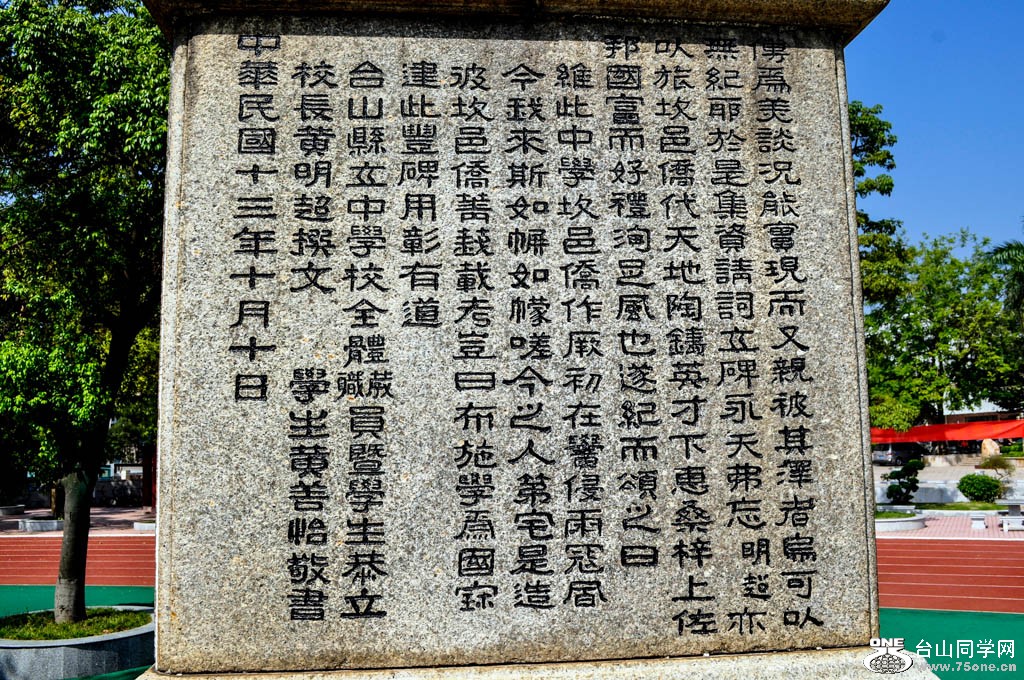 傳爲美談況能實現而又親被其澤者烏可以
無紀耶於是集資請詞立碑永天弗忘明超亦
以旅坎邑僑代天地陶鑄英才下惠桑梓上佐
邦國富而好禮洵足風也遂紀而頌之曰
維此中學坎邑僑作厥初在黌侵雨寇
今我來斯如帡如幪嗟今之人第宅是造
彼坎邑僑善載考豈曰布施學爲國寶
建此豐碑用彰有道
台山縣立中學校全體職員暨學生恭立
校長黄明超撰文 學生黄善怡敬書
中華民國十三年十月十日
ONE
台山同学网
www.75one.cn